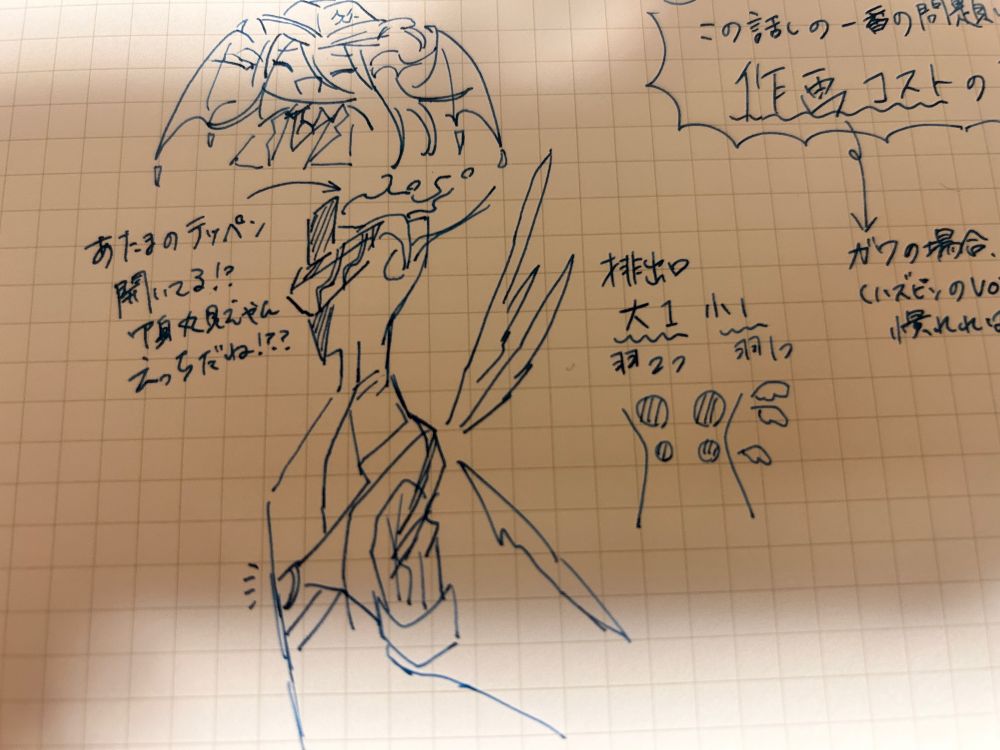 この話しの一番の問題
作画コストの
205°
あたまのテッペン
開いてる!?
中身丸見えやん
えっちだね!??
排出口
大1 小1
羽2つ 羽1つ
ガワの場合、
(ハズビンのVO
慣れれば